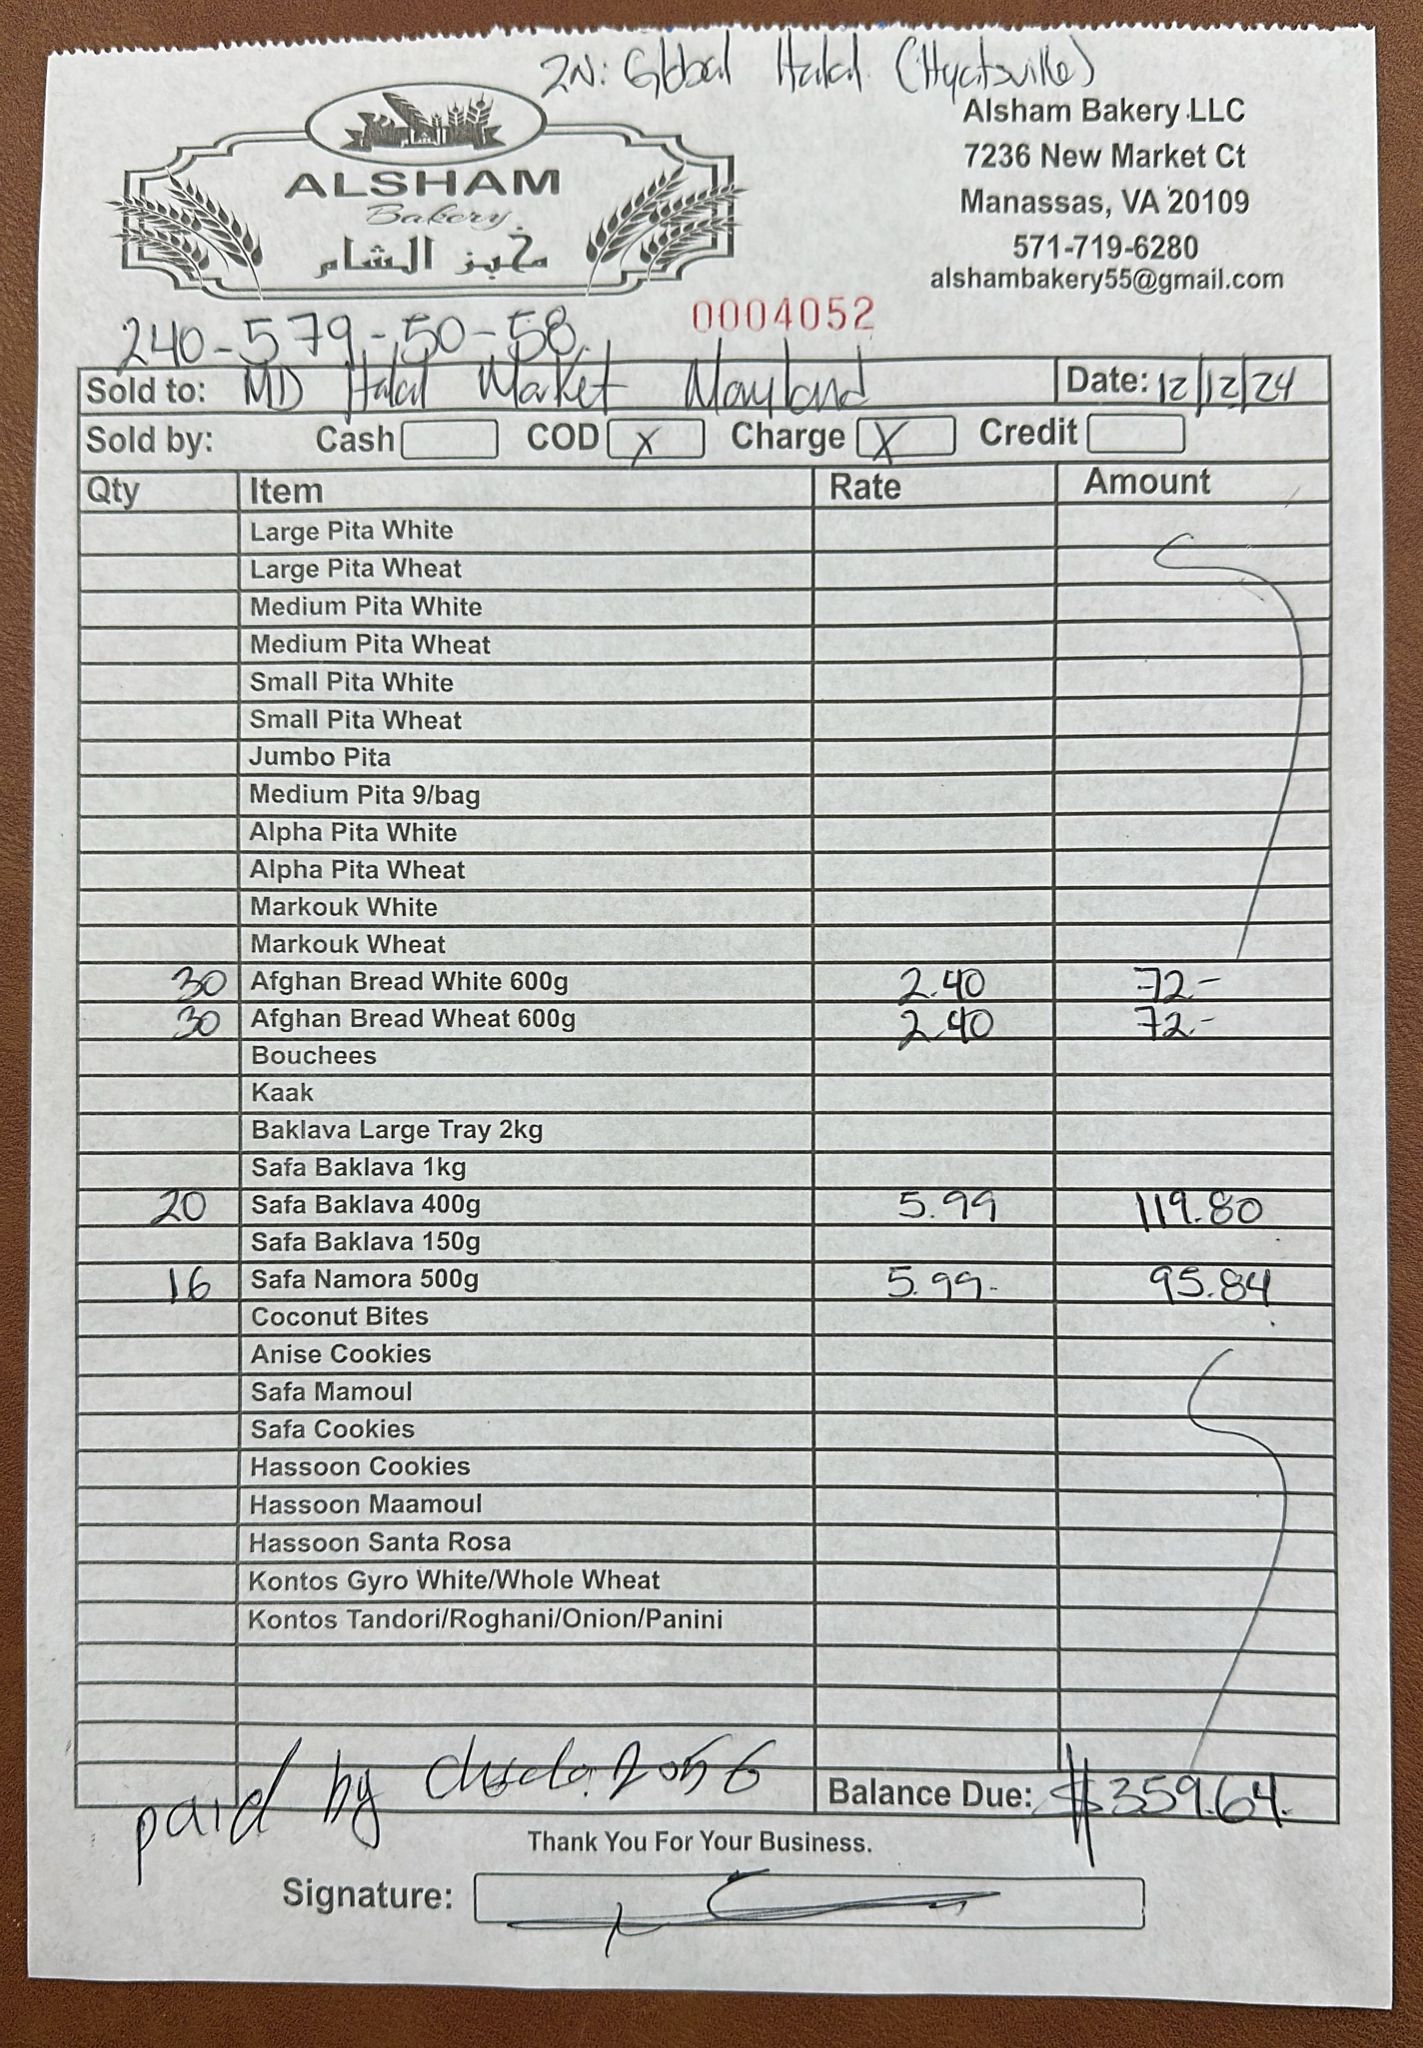 2N: Global Halal (Hyatsville)
ALSHAM
Bakery
مخبز الشام
Alsham Bakery LLC
7236 New Market Ct
Manassas, VA 20109
571-719-6280
alshambakery55@gmail.com
240-579-50-58
0004052
Sold to: MD Halal Market Mayland Date: 12/12/24
Sold by: Cash COD X Charge X Credit
Qty Item Rate Amount
Large Pita White
Large Pita Wheat
Medium Pita White
Medium Pita Wheat
Small Pita White
Small Pita Wheat
Jumbo Pita
Medium Pita 9/bag
Alpha Pita White
Alpha Pita Wheat
Markouk White
Markouk Wheat
30 Afghan Bread White 600g 2.40 72.-
30 Afghan Bread Wheat 600g 2.40 72.-
Bouchees
Kaak
Baklava Large Tray 2kg
Safa Baklava 1kg
20 Safa Baklava 400g 5.99 119.80
Safa Baklava 150g
16 Safa Namora 500g 5.99- 95.84
Coconut Bites
Anise Cookies
Safa Mamoul
Safa Cookies
Hassoon Cookies
Hassoon Maamoul
Hassoon Santa Rosa
Kontos Gyro White/Whole Wheat
Kontos Tandori/Roghani/Onion/Panini
paid by 2056
Balance Due: $359.64.
Thank You For Your Business.
Signature: